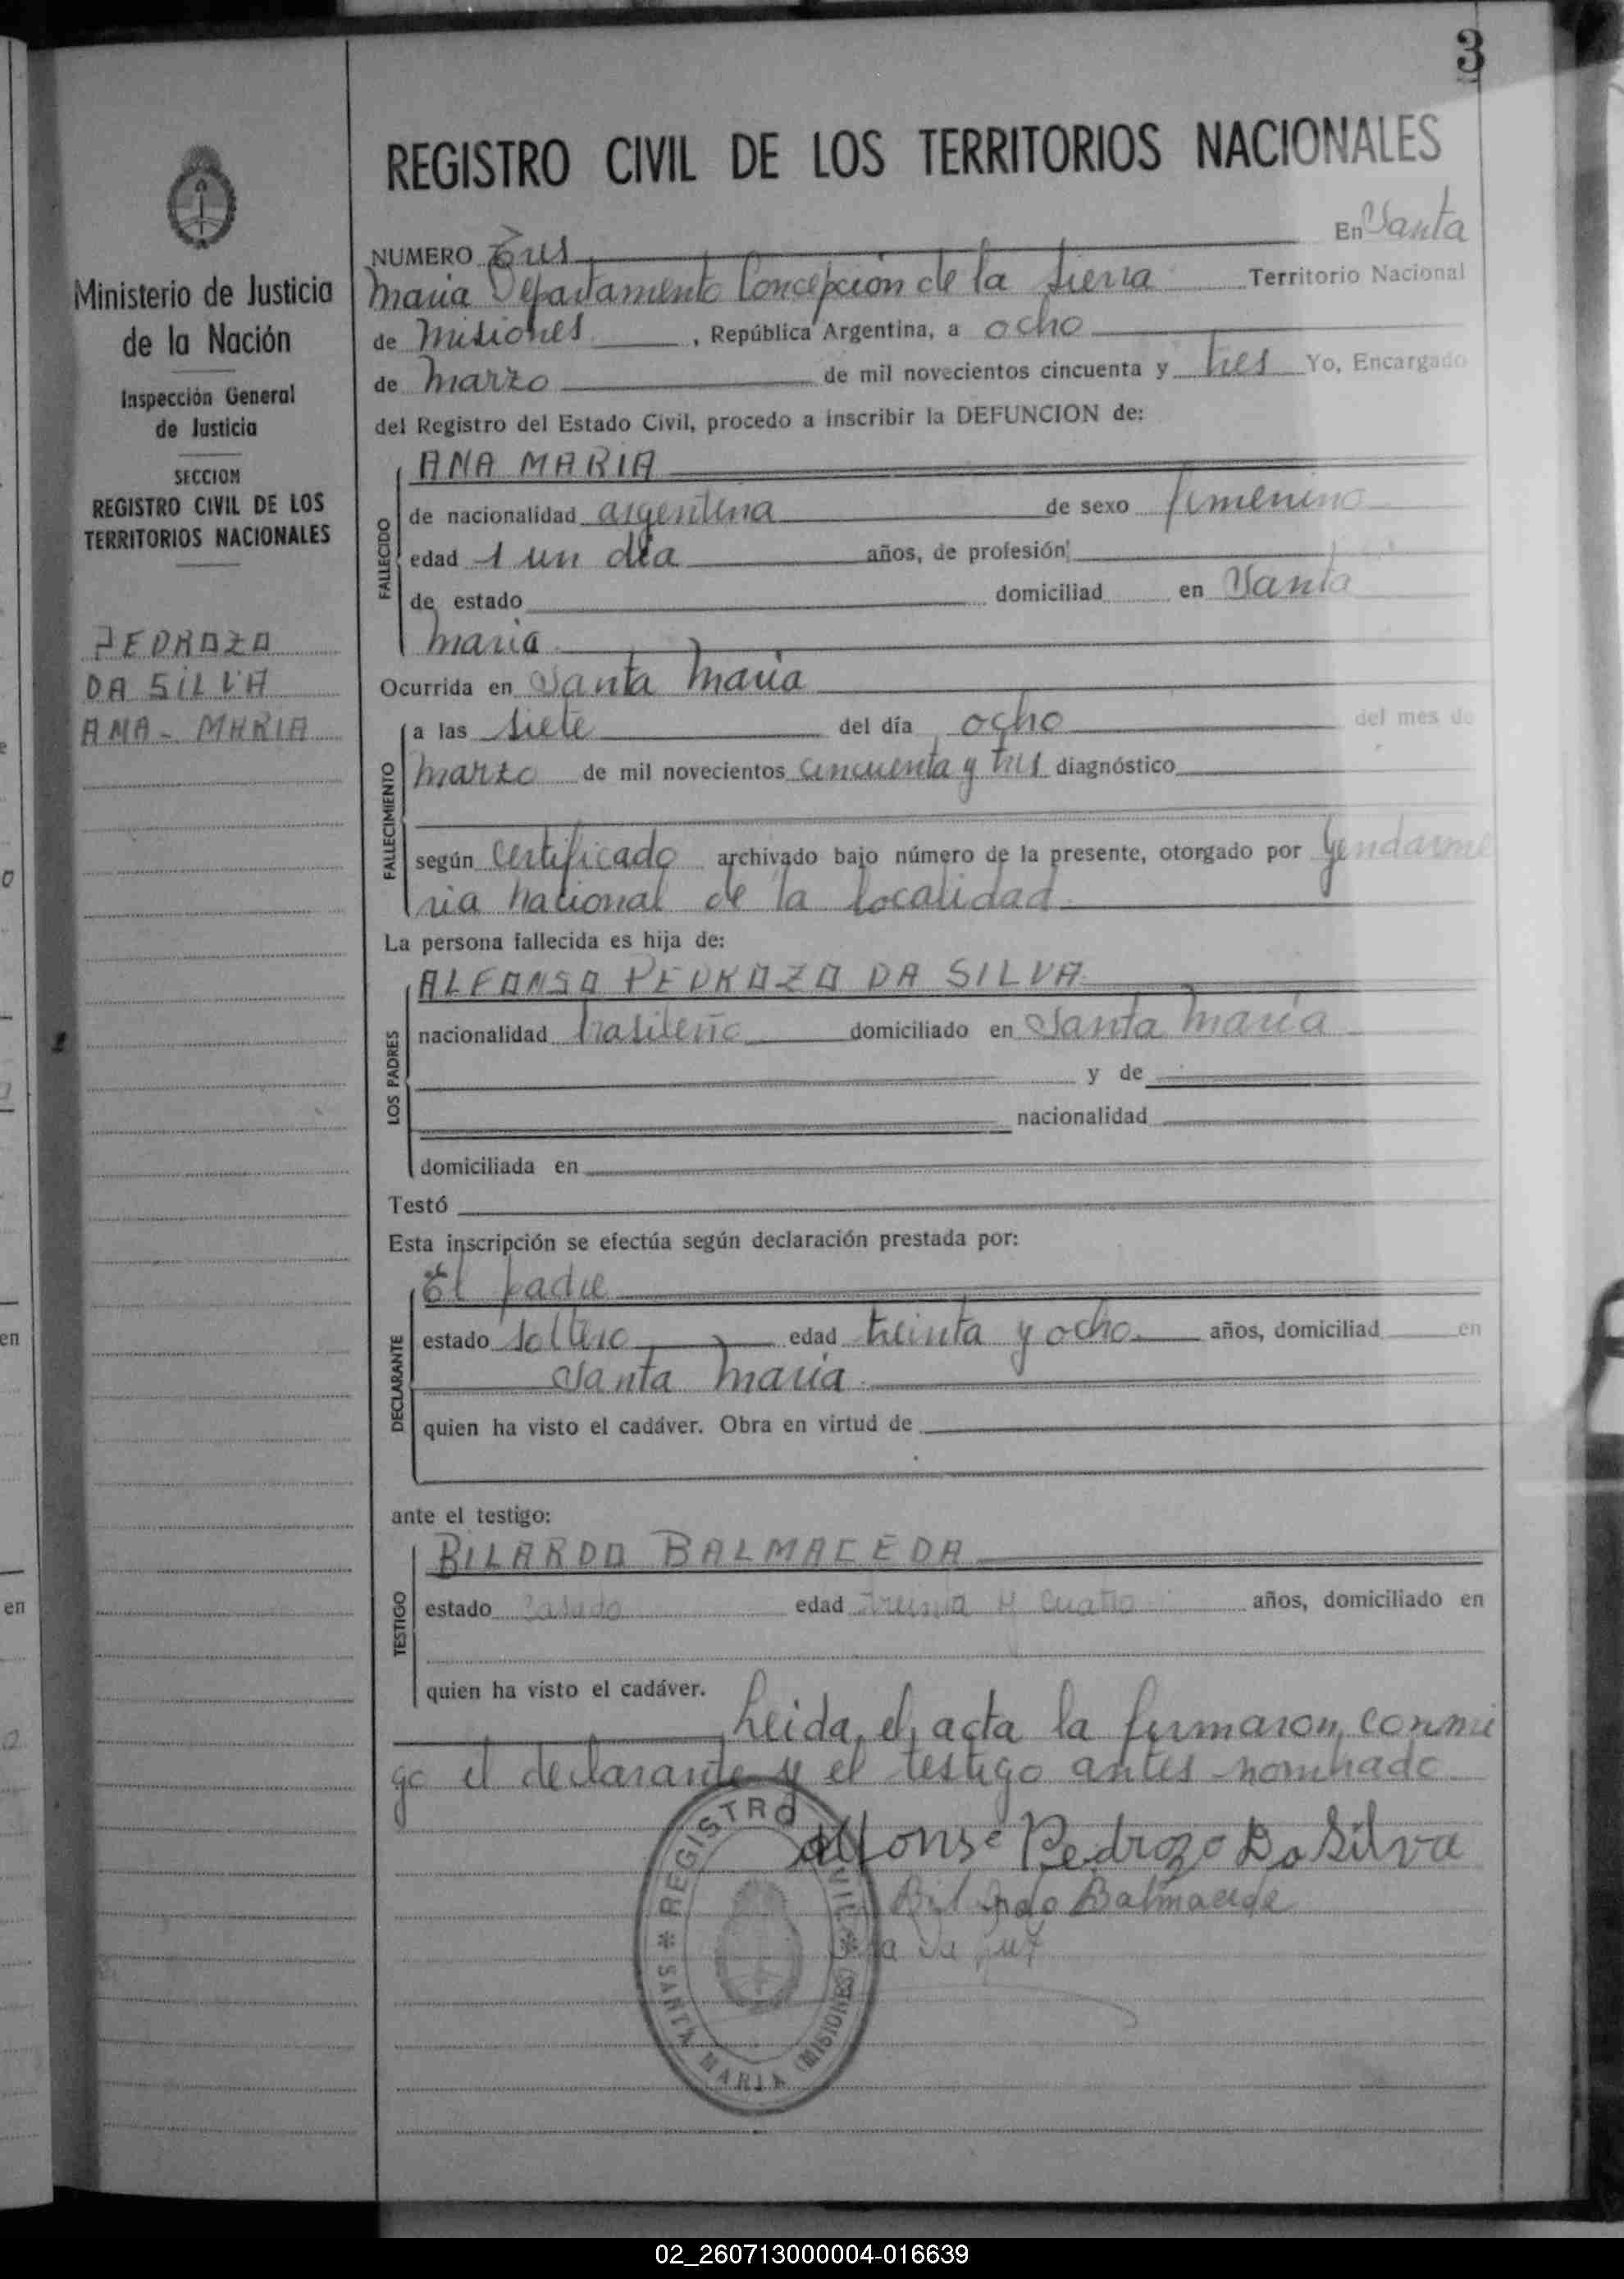 3
REGISTRO CIVIL DE LOS TERRITORIOS NACIONALES
Ministerio de Justicia
de la Nación
Inspección General
de Justicia
SECCION
REGISTRO CIVIL DE LOS
TERRITORIOS NACIONALES
PEDROZO
DA SILVA
ANA - MARIA
NUMERO Tres En Santa
Maria Departamento Concepción de la Sierra Territorio Nacional
de Misiones, República Argentina, a ocho
de Marzo de mil novecientos cincuenta y tres Yo, Encargado
del Registro del Estado Civil, procedo a inscribir la DEFUNCION de:
FALLECIDO
ANA MARIA
de nacionalidad argentina de sexo femenino
edad 1 un dia años, de profesión
de estado domiciliad en Santa
Maria
Ocurrida en Santa Maria
FALLECIMIENTO
a las siete del día ocho del mes de
Marzo de mil novecientos cincuenta y tres diagnóstico
según certificado archivado bajo número de la presente, otorgado por Gendarme
ria Nacional de la localidad
La persona fallecida es hija de:
LOS PADRES
ALFONSO PEDROZO DA SILVA
nacionalidad brasileño domiciliado en Santa Maria
y de
nacionalidad
domiciliada en
Testó
Esta inscripción se efectúa según declaración prestada por:
DECLARANTE
El padre
estado soltero edad treinta y ocho años, domiciliad en
Santa Maria
quien ha visto el cadáver. Obra en virtud de
ante el testigo:
TESTIGO
BILARDO BALMACEDA
estado Casado edad treinta y cuatro años, domiciliado en
quien ha visto el cadáver.
Leida el acta la firmaron conmi
go el declarante y el testigo antes nombrado
Alfonso Pedrozo Da Silva
Balmaceda
REGISTRO CIVIL * SANTA MARIA (MISIONES) *
02_260713000004-016639